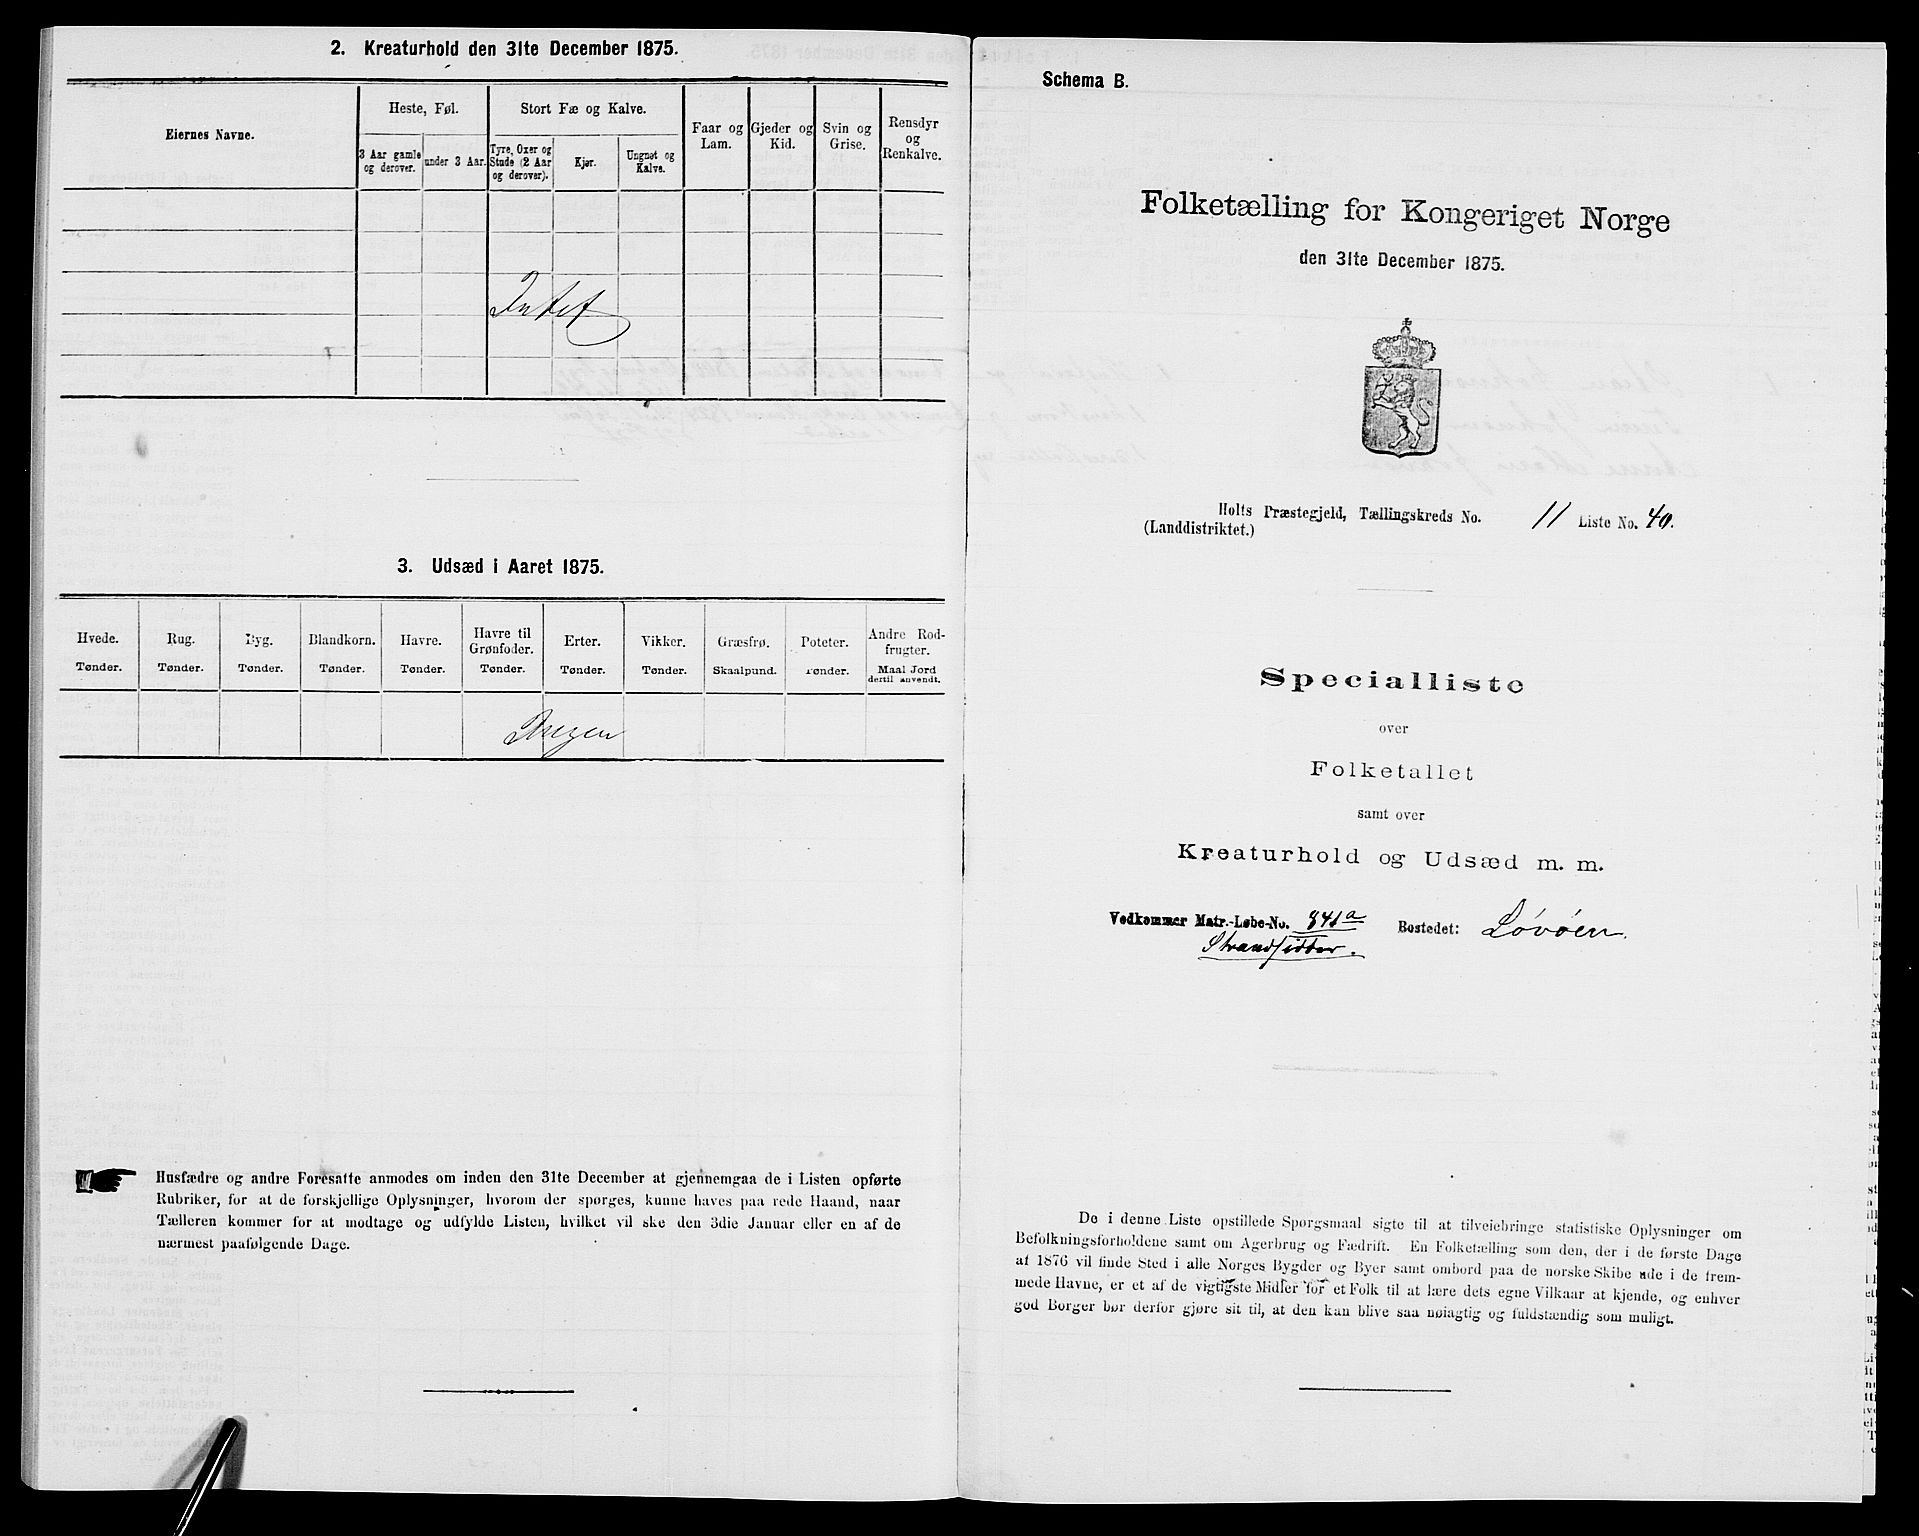 2. Kreaturhold den 31te December 1875.
Eiernes Navne.
Heste, Føl.
Stort Fæ og Kalve.
Faar og Lam.
Gjeder og Kid.
Svin og Grise.
Rensdyr og Renkalve.
3 Aar gamle og derover.
under 3 Aar.
Tyre, Oxer og Stude (2 Aar og derover).
Kjør.
Ungnøt og Kalve.
Intet
3. Udsæd i Aaret 1875.
Hvede. Rug. Byg. Blandkorn. Havre. Havre til Grønfoder. Erter. Vikker. Græsfrø. Poteter. Andre Rodfrugter.
Tønder. Tønder. Tønder. Tønder. Tønder. Tønder. Tønder. Tønder. Skaalpund. Tønder. Maal Jord dertil anvendt.
Ingen
Husfædre og andre Foresatte anmodes om inden den 31te December at gjennemgaa de i Listen opførte
Rubriker, for at de forskjellige Oplysninger, hvorom der spørges, kunne haves paa rede Haand, naar
Tælleren kommer for at modtage og udfylde Listen, hvilket vil ske den 3die Januar eller en af de
nærmest paafølgende Dage.
Schema B.
Folketælling for Kongeriget Norge
den 31te December 1875.
Holts Præstegjeld, Tællingskreds No. 11 Liste No. 40.
(Landdistriktet.)
Specialliste
over
Folketallet
samt over
Kreaturhold og Udsæd m. m.
Vedkommer Matr.-Løbe-No. 341a Bostedet: Løvøen.
Strandsidder.
De i denne Liste opstillede Spørgsmaal sigte til at tilveiebringe statistiske Oplysninger om
Befolkningsforholdene samt om Agerbrug og Fædrift. En Folketælling som den, der i de første Dage
af 1876 vil finde Sted i alle Norges Bygder og Byer samt ombord paa de norske Skibe ude i de frem-
mede Havne, er et af de vigtigste Midler for et Folk til at lære dets egne Vilkaar at kjende, og enhver
god Borger bør derfor gjøre sit til, at den kan blive saa nøiagtig og fuldstændig som muligt.